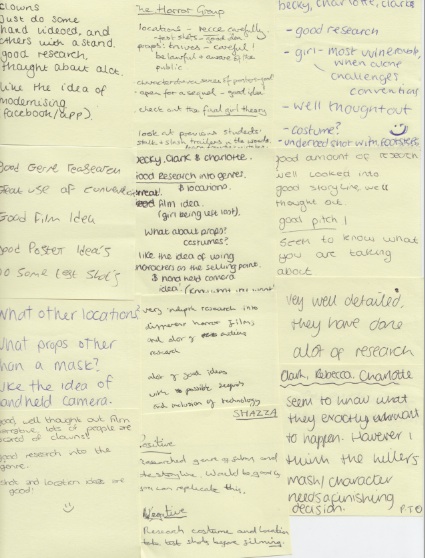 clowns
Just do some
hand videoed, and
others with a stand.
good research,
thought about alot.
like the idea of
modernising
(facebook/app).
Good Genre Research
Great use of
Good Film Idea
Good Poster Idea's
Do Some test Shot's
What other locations?
What props other
than a mask?
Like the idea of
handheld camera.
good, well thought out film
lots of people are
scared of clowns!
good research into the
genre.
shots and location ideas are
good!
The Horror Group
locations - recce carefully.
test shots - good idea!
props: knives - careful!
be careful + aware of the
public.
open for a sequel - good idea
check out the final girl theory
look at previous students
Becky, Clark & Charlotte.
Good Research into genres.
& locations.
Good film idea.
(girl being left lost).
What about props?
costumes?
like the idea of using
characters as the selling point.
& hand held camera
idea.
very indepth research into
different horror films,
and alot of
research
alot of good ideas
with possible
and inclusion of technology
SHAZZA
Positive
Researched genre of
the storyline. Would be good if
you can replicate this.
Negative
Research costume and location
take test shots before filming.
becky, charlotte, clarke
- good research
- girl - most vulnerable,
when alone
challenges
convention
- Well thought out
- costume?
- underfoot shot with footsteps
good amount of research
well looked into
good storyline, well
thought out
good pitch!
Seem to know what
you are talking
about
Very well detailed,
they have done
alot of research
Clark, Rebecca, Charlotte
seem to know what
they exactly want
to happen. However I
think the killers
mask/character
needs a finishing
decision. PTO